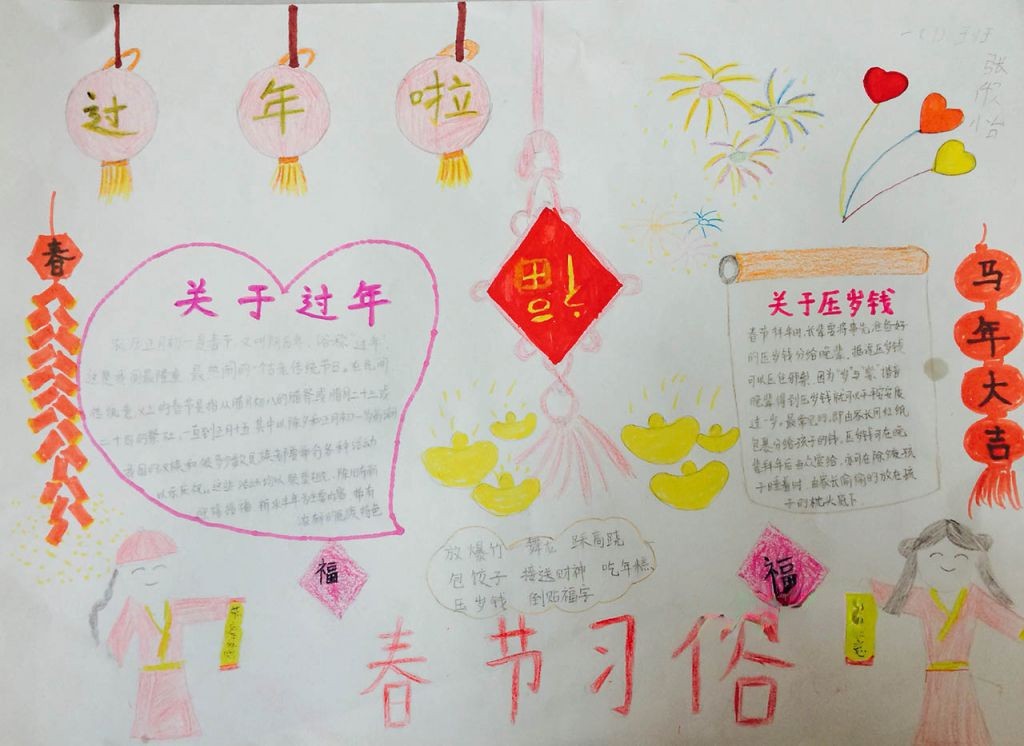 过年啦
张
怡
春
福
马年大吉
关于过年
农历正月初一是春节,又叫阴历年,俗称"过年".
这是我国最隆重、最热闹的一个古老传统节日。在民间,
传统意义上的春节是指从腊月初八的腊祭或腊月二十三或
二十四的祭灶,一直到正月十五,其中以除夕和正月初一为高潮
我国的汉族和很多少数民族都要举行各种活动
以示庆祝。这些活动均以祭祀祖先、除旧布新
迎禧接福、祈求丰年为主要内容,带有
浓郁的民族特色
关于压岁钱
春节拜年时,长辈要将事先准备好
的压岁钱分给晚辈,据说压岁钱
可以压住邪祟,因为"岁"与"祟"谐音
晚辈得到压岁钱就可以平平安安度
过一岁。最常见的,即由家长用红纸
包裹分给孩子的钱。压岁钱可在晚
辈拜年后当众赏给,亦可在除夕夜孩
子睡着时,由家长偷偷的放在孩
子的枕头底下
放爆竹 舞龙 踩高跷
包饺子 接送财神 吃年糕
压岁钱 倒贴福字
福
福
春节习俗